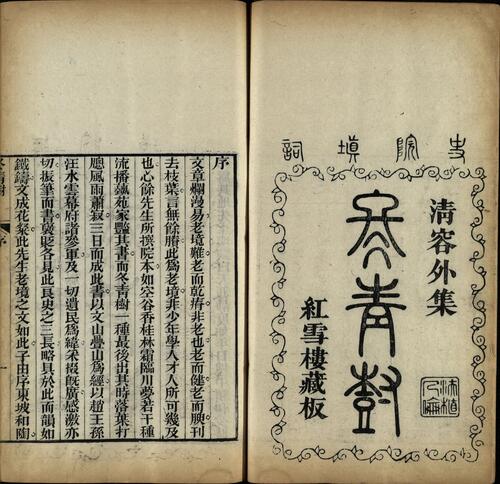 史院填詞
清容外集
冬青樹
紅雪樓藏板
序
文章爛漫易老境難老而乾瘠非老也老而健老而腴刊
去枝葉言無餘賸此為老境非少年學人才人所可幾及
也心餘先生所撰院本如空谷香桂林霜臨川夢若干種
流播藝苑家豔其書而冬青樹一種最後出其時落葉打
牕風雨蕭寂三日而成此書以文山疊山為經以趙王孫
汪水雲幕府諸參軍及一切遺民為緯采掇旣廣感激亦
切振筆而書褒貶各見此良史之三長略具於此而韻如
鐵鑄文成花粲此先生老境之文如此子由序東坡和陶
冬青樹
序
一